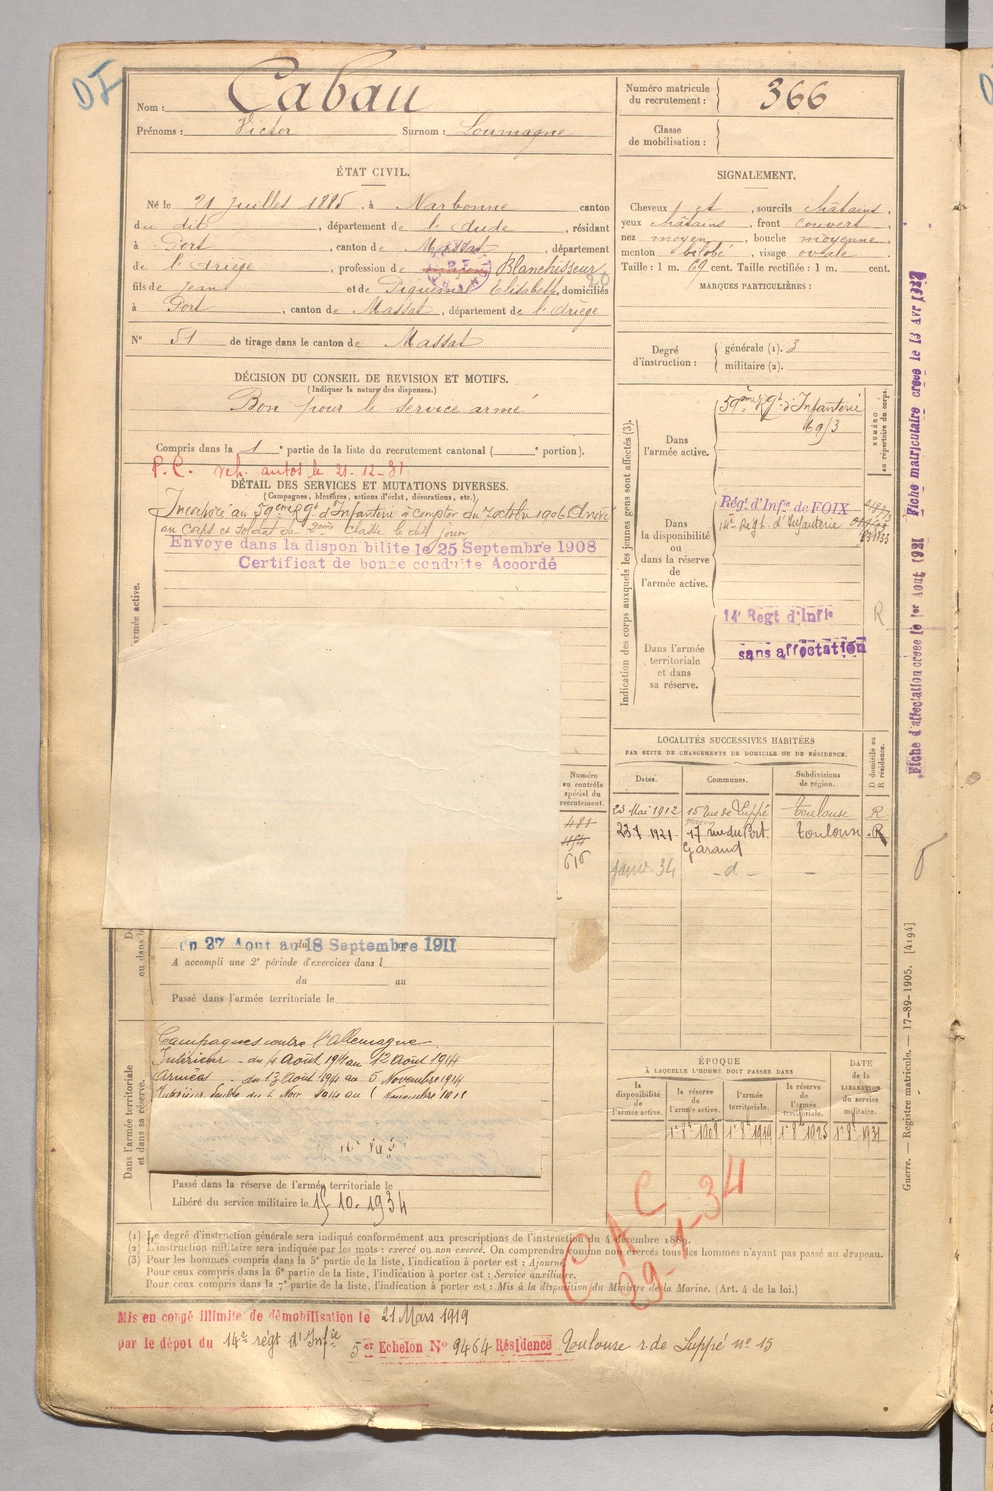 Nom : Cabau
Prénoms : Victor Surnom : Loumagne
Numéro matricule du recrutement : 366
Classe de mobilisation :
ÉTAT CIVIL.
Né le 21 Juillet 1885, à Narbonne canton
du dit, département de l'Aude, résidant
à Port, canton de Massat, département
de l'Ariège, profession de Blanchisseur
fils de Jean et de Piquemal Elisabeth, domiciliés
à Port, canton de Massat, département de l'Ariège
N° 51 de tirage dans le canton de Massat
SIGNALEMENT.
Cheveux et, sourcils châtains,
yeux châtains, front couvert
nez moyen, bouche moyenne,
menton bilobé, visage ovale
Taille : 1 m. 69 cent. Taille rectifiée : 1 m. cent.
MARQUES PARTICULIÈRES :
Degré d'instruction : générale (1). 3
militaire (2).
DÉCISION DU CONSEIL DE REVISION ET MOTIFS.
(Indiquer la nature des dispenses.)
Bon pour le service armé
Compris dans la 1e partie de la liste du recrutement cantonal ( e portion).
P.C. autos le 21-12-31
DÉTAIL DES SERVICES ET MUTATIONS DIVERSES.
(Campagnes, blessures, actions d'éclat, décorations, etc.)
Incorporé au 59eme Rgt d'Infanterie à compter du 7 octobre 1906 Arrivé
au corps et soldat de 2eme classe le dit jour
Envoye dans la disponibilite le 25 Septembre 1908
Certificat de bonne conduite Accordé
armée active.
Indication des corps auxquels les jeunes gens sont affectés (3).
NUMÉRO au répertoire du corps.
Dans l'armée active.
59eme Rgt d'Infanterie
Dans la disponibilité ou dans la réserve de l'armée active.
Régt d'Infie de FOIX
14e Regt. d'Infanterie
14e Regt d'Infie
R
Dans l'armée territoriale et dans sa réserve.
sans affectation
LOCALITÉS SUCCESSIVES HABITÉES
PAR SUITE DE CHANGEMENTS DE DOMICILE OU DE RÉSIDENCE.
D domicile ou R résidence.
Dates. Communes. Subdivisions de région.
23 Mai 1912 15 rue de Luppé Toulouse R
1921 17 rue du Port Garaud Toulouse R
Janv. 34 - d - -
Numéro au contrôle spécial du recrutement.
481
616
du 27 Aout au 18 Septembre 1911
A accompli une 2e période d'exercices dans l
du au
Passé dans l'armée territoriale le
Dans l'armée territoriale et dans sa réserve.
Campagnes contre l'Allemagne.
Intérieur - du 4 Août 1914 au 12 Août 1914
Armées - du 13 Août 1914 au 5 Novembre 1914
Passé dans la réserve de l'armée territoriale le
Libéré du service militaire le 15.10.1934
ÉPOQUE
À LAQUELLE L'HOMME DOIT PASSER DANS
la disponibilité de l'armée active.
la réserve de l'armée active.
l'armée territoriale.
la réserve de l'armée territoriale.
DATE de la LIBÉRATION du service militaire.
1er 8bre 1908 1er 8bre 1919 1er 8bre 1925 1er 8bre 1931
C A C
29-1-34
(1) Le degré d'instruction générale sera indiqué conformément aux prescriptions de l'instruction du 4 décembre 1889.
(2) L'instruction militaire sera indiquée par les mots : exercé ou non exercé. On comprendra comme non exercés tous les hommes n'ayant pas passé au drapeau.
(3) Pour les hommes compris dans la 5e partie de la liste, l'indication à porter est : Ajourné
Pour ceux compris dans la 6e partie de la liste, l'indication à porter est : Service auxiliaire.
Pour ceux compris dans la 7e partie de la liste, l'indication à porter est : Mis à la disposition du Ministre de la Marine. (Art. 4 de la loi.)
Mis en congé illimité de démobilisation le 21 Mars 1919
par le dépot du 14e régt d'Infie 5er Echelon N° 9464 Résidence Toulouse r. de Luppé n° 15
Fiche d'affectation creee le 1er Aout 1921
Fiche matriculaire creee le 13 Avr 1927
Guerre. — Registre matricule. — 17-89-1905. [4194]